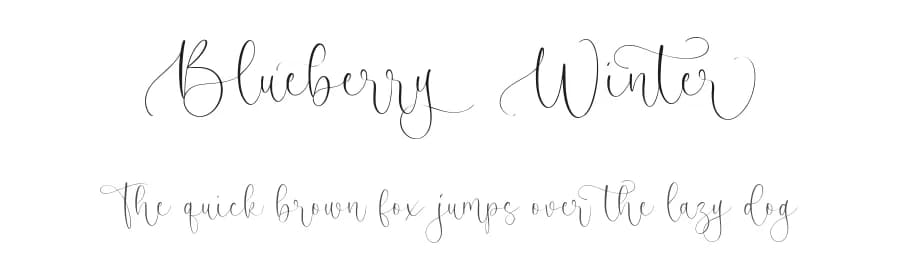 Blueberry Winter
The quick brown fox jumps over the lazy dog